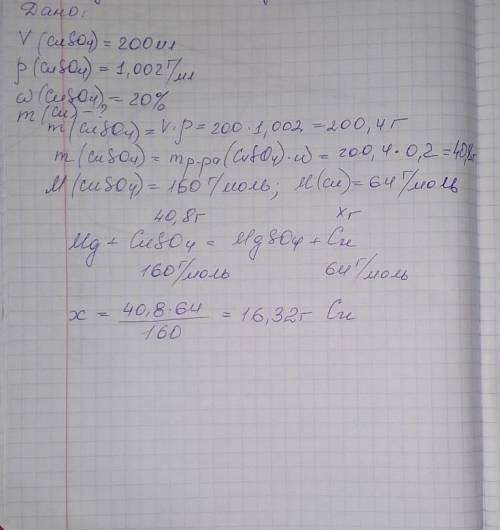 Дано:
V(CuSO4) = 200мл
ρ(CuSO4) = 1,002 г/мл
ω(CuSO4) = 20%
m(Cu) - ?
m(CuSO4) = V·ρ = 200·1,002 = 200,4 г
m(CuSO4) = mр-ра(CuSO4)·ω = 200,4·0,2 = 40,8г
M(CuSO4) = 160 г/моль; M(Cu) = 64 г/моль
40,8г xг
Mg + CuSO4 = MgSO4 + Cu
160 г/моль 64 г/моль
x = 40,8·64 / 160 = 16,32г Cu